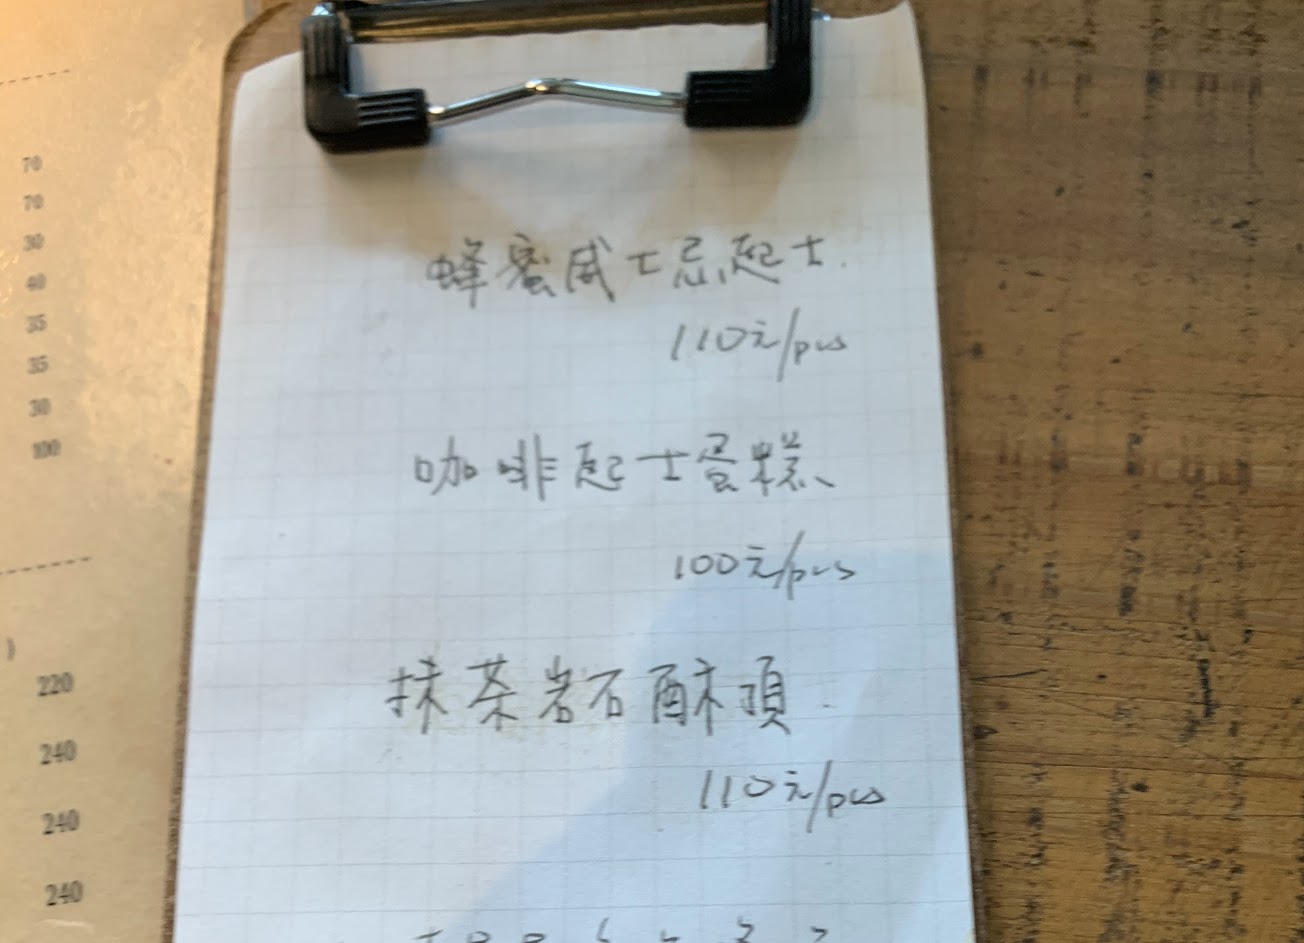 70
70
30
40
35
35
30
100
)
220
240
240
240
蜂蜜威士忌起士.
110元/pcs
咖啡起士蛋糕
100元/pcs
抹茶岩石酥頂.
110元/pcs